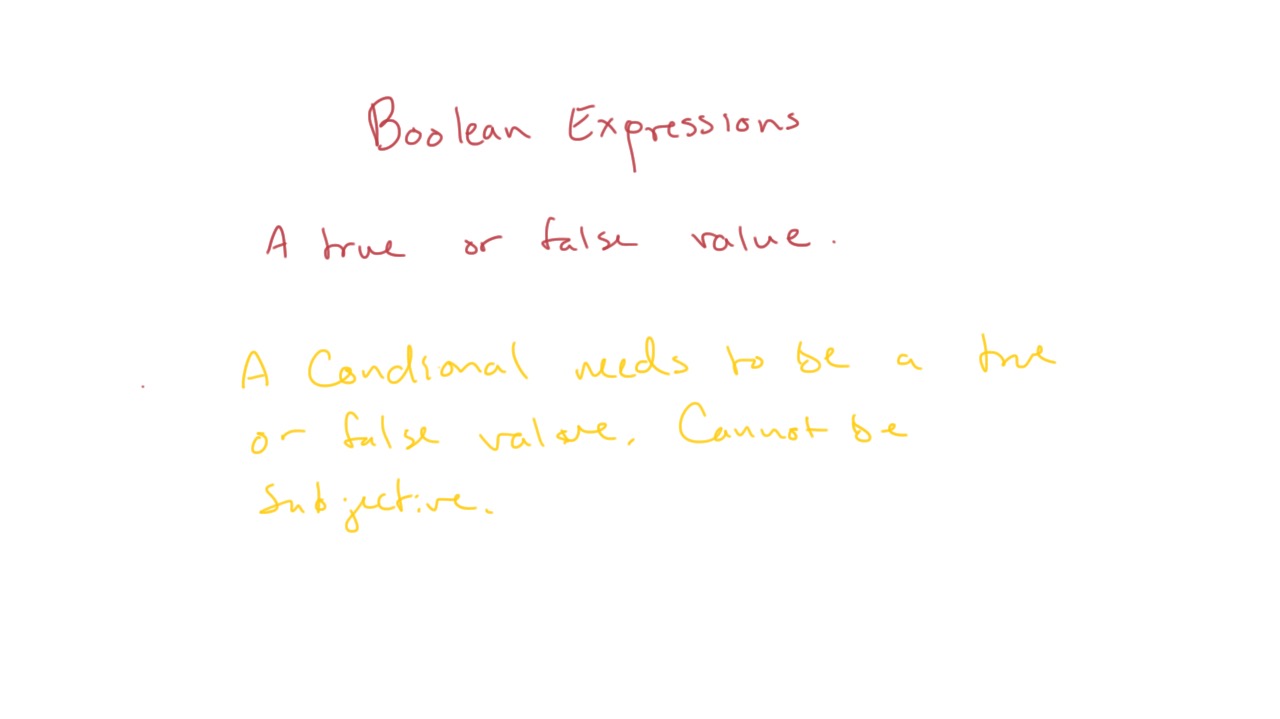 Boolean Expressions
A true or false value.
A Condional needs to be a true
or false value. Cannot be
subjective.